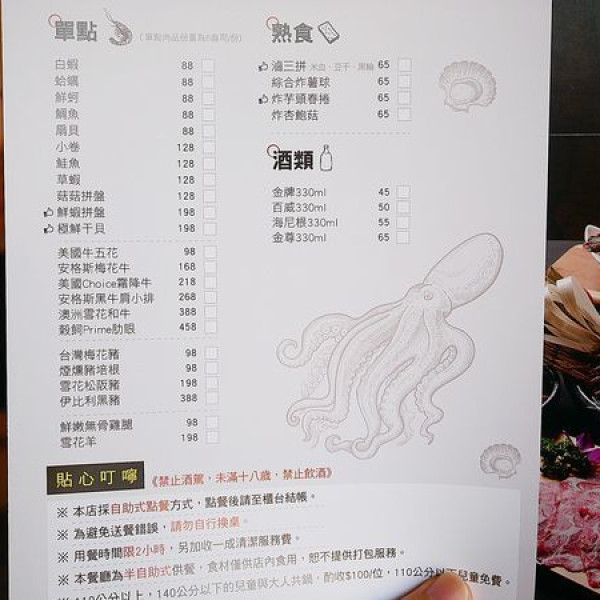 單點 (單點肉品份量為6盎司/份)
白蝦 88
蛤蠣 88
鮮蚵 88
鯛魚 88
扇貝 88
小卷 128
鮭魚 128
草蝦 128
菇菇拼盤 128
鮮蝦拼盤 198
極鮮干貝 198
美國牛五花 98
安格斯梅花牛 168
美國Choice霜降牛 218
安格斯黑牛肩小排 268
澳洲雪花和牛 388
穀飼Prime肋眼 458
台灣梅花豬 98
煙燻豬培根 98
雪花松阪豬 198
伊比利黑豬 388
鮮嫩無骨雞腿 98
雪花羊 198
熟食
滷三拼 米血、豆干、黑輪 65
綜合炸薯球 65
炸芋頭春捲 65
炸杏鮑菇 65
酒類
金牌330ml 45
百威330ml 50
海尼根330ml 55
金尊330ml 65
貼心叮嚀 《禁止酒駕，未滿十八歲，禁止飲酒》
※ 本店採自助式點餐方式，點餐後請至櫃台結帳。
※ 為避免送餐錯誤，請勿自行換桌。
※ 用餐時間限2小時，另加收一成清潔服務費。
※ 本餐廳為半自助式供餐，食材僅供店內食用，恕不提供打包服務。
※ 110公分以上，140公分以下的兒童與大人共鍋，酌收$100/位，110公分以下兒童免費。